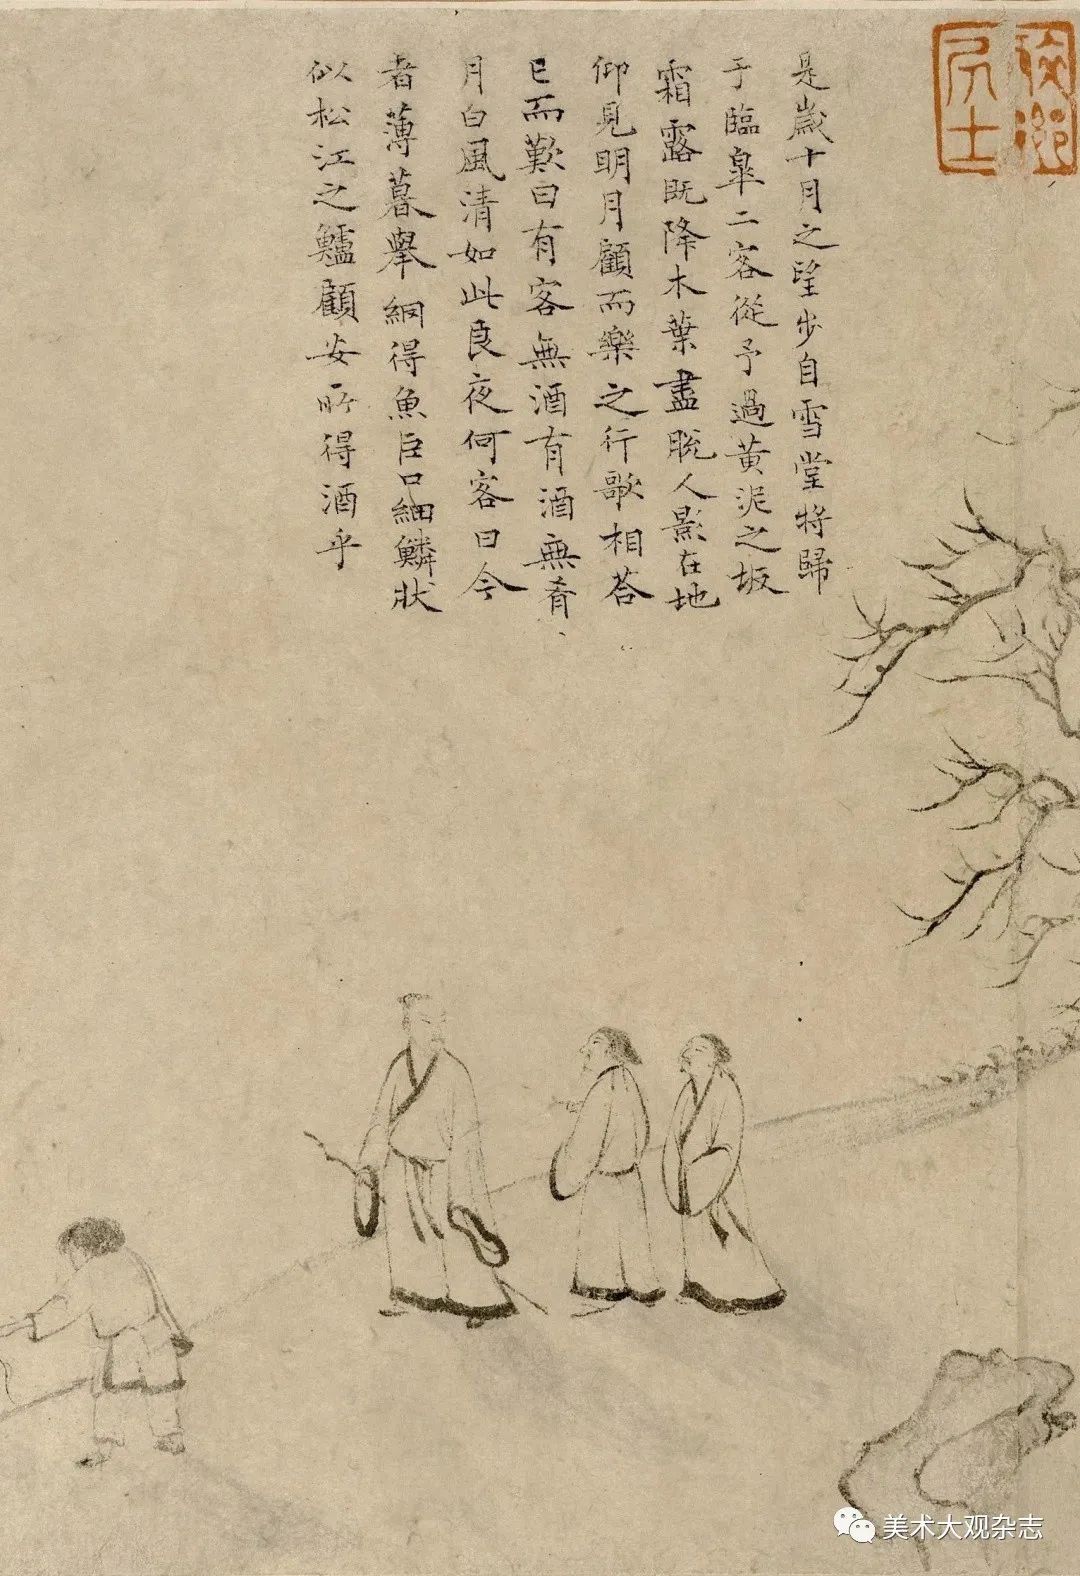 是歲十月之望步自雪堂將歸
于臨皋二客從予過黃泥之坂
霜露既降木葉盡脫人影在地
仰見明月顧而樂之行歌相荅
已而歎曰有客無酒有酒無肴
月白風清如此良夜何客曰今
者薄暮舉網得魚巨口細鱗狀
似松江之鱸顧安所得酒乎
美术大观杂志